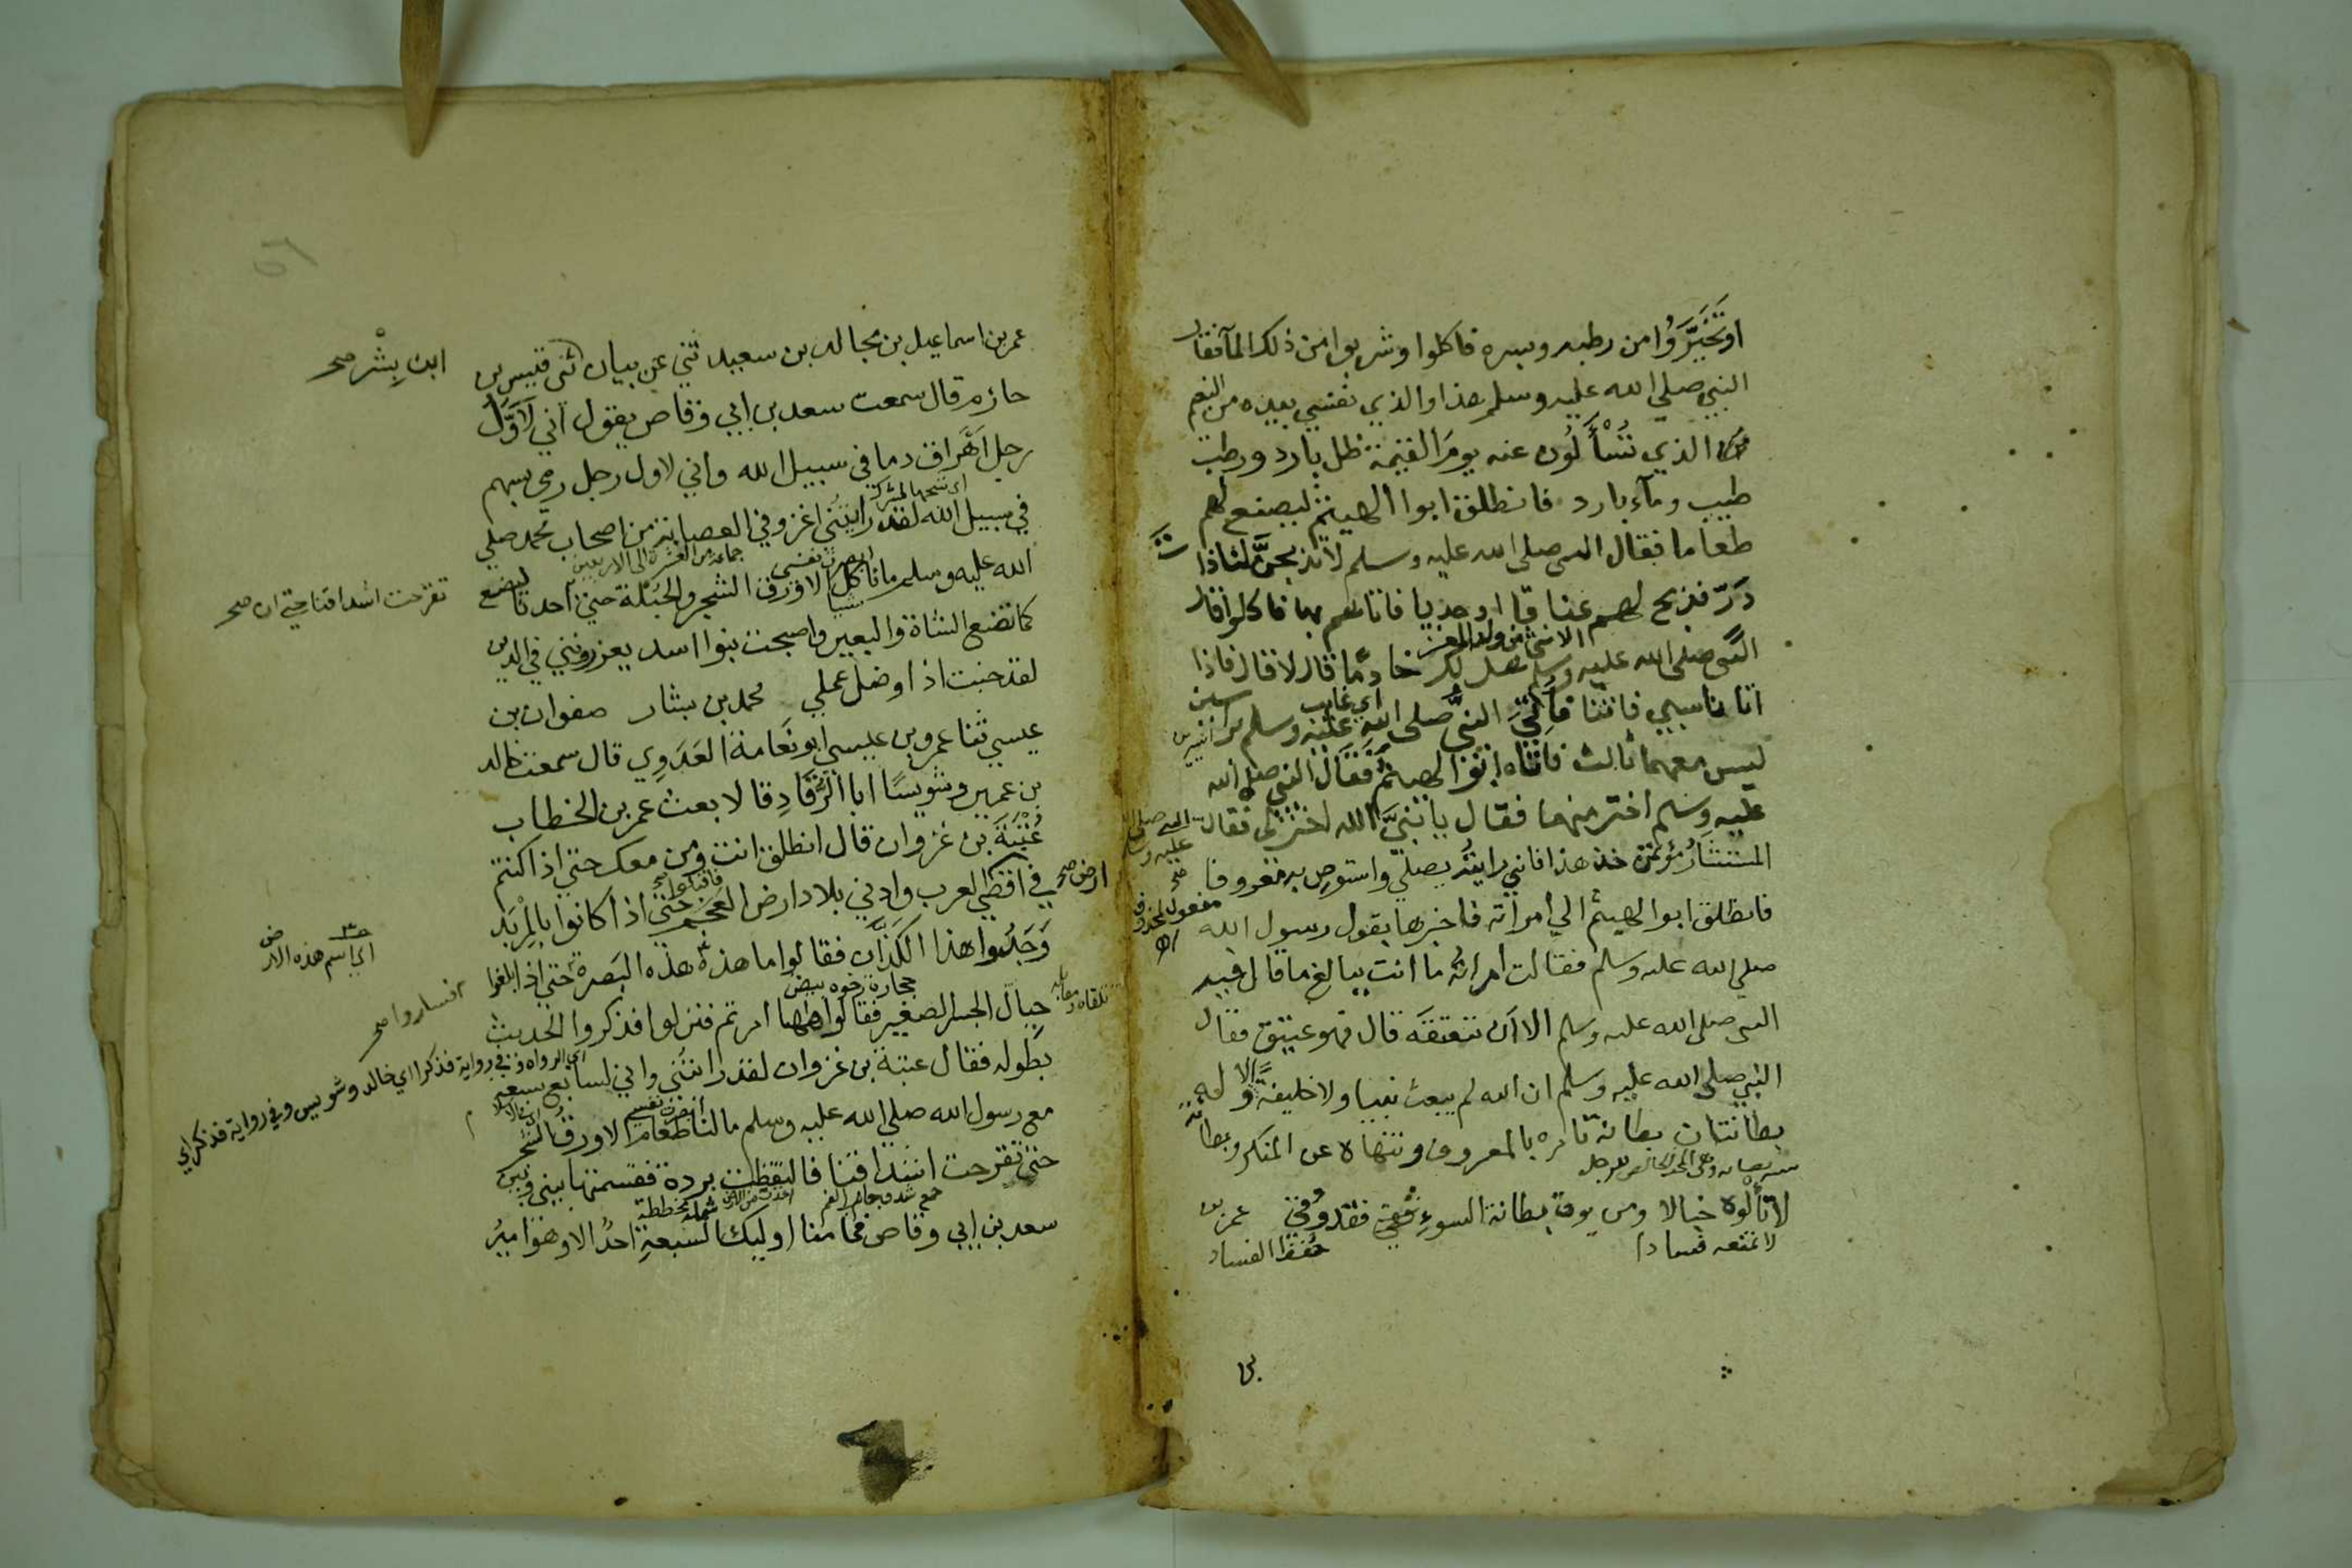 او تَخَيَّرَوُا من رطبه وبسره فاكلوا وشربوا من ذلك المآ فقال
النبي صلى الله عليه وسلم هذا والذي نفسي بيده من النعيم
الذي تُسْأَلُون عنه يومَ القيمة ظل بارد ورطب
طيب وماء بارد فانطلق ابوا الهيثم ليصنع لهم
طعاما فقال النبي صلى الله عليه وسلم لا تذبحنَّ لنا ذات
دَرّ فذبح لهم عناقا او جديا فاتاهم بها فاكلوا فقال
الانثى من ولد المعز
النبي صلى الله عليه وسلم هل لك خادمًا قال لا قال فاذا
اتانا سبي فاتنا فاُتِيَ النبيُّ صلى الله عليه وسلم براسين
ليس معهما ثالث فاتاه ابوا الهيثم فقال النبي صلى الله
عليه وسلم اختر منهما فقال يا نبيَّ الله اختر لي فقال النبي صلى الله عليه وسلم
المستشارُ مؤتمن خذ هذا فاني رايتُه يصلي واستوصِ به معروفا
مفعول لمحذوف
فانطلق ابوا الهيثم الي امرأته فاخبرها بقول رسول الله
صلي الله عليه وسلم فقالت امراتُه ما انت ببالغ ما قال فيه
النبي صلى الله عليه وسلم الا اَن تعتقَه قال فهو عتيق فقال
النبي صلى الله عليه وسلم ان الله لم يبعث نبيا ولا خليفةً الا وله
بطانتان بطانة تامره بالمعروف وتنهاه عن المنكر وبطانة
لا تألوه خبالا ومن يوق بطانة السوءِ فقد وُقِيَ عمر بن
لا تمنعه فسادا
بن
عمر بن اسماعيل بن مجالد بن سعيد ثني عن بيان ثنى قيس بن
ابن بِشْر صح
حازم قال سمعت سعد بن ابي وقاص يقول اني لَاَوَّلُ
رجل اَهْراق دما في سبيل الله واني لاول رجل رمي بسهم
في سبيل الله لقد رايتُني اغزو في العصابة من اصحاب محمد صلي
جماعة من العشرة الى الاربعين
الله عليه وسلم ما نأكل شيا الا ورق الشجر والحُبْلَة حتي احدنا ليضع
تقرحت اشداقنا حتى ان صح
كما تضع الشاة والبعير واصبحت بنوا اسد يعزرونني في الدين
لقد خبت اذا وضل عملي محمد بن بشار صفوان بن
عيسي ثنا عمرو بن عيسي ابو نَعَامة العَدَوِي قال سمعت خالد
بن عمير وشُوَيْسًا ابا الرُّقَادِ قالا بعث عمر بن الخطاب
عُتْبَةَ بن غزوان قال انطلق انت ومن معك حتي اذا كنتم
في اقصَي ارض صح العرب وادني بلاد ارض العَجَم حتي اذا كانوا بالمِرْبَد
فاقبلوا صح
وَجَدُوا هذا الكَذَّان فقالوا ما هذه هذه البَصرةُ حتي اذا بلغوا
اي اسم هذه الارض
فساروا صح
حجارة رخوه بيض
حِيالَ الجسر الصغير فقالوا ههنا امرتم فنزلوا فذكروا الحديث
بطوله فقال عتبة بن غزوان لقد رايتُني واني لسابع سبعة
اي الرواه وفي رواية فذكرا اي خالد وشويس وفي رواية فذكر اي
مع رسول الله صلي الله عليه وسلم ما لنا طعام الا ورق الشجر
حتى تقرحت اشداقنا فالتقطت بردة فقسمتها بيني وبين
شملة مخططة
سعد بن ابي وقاص فما منا اوليك السبعةِ احدٌ الا وهو اميرُ